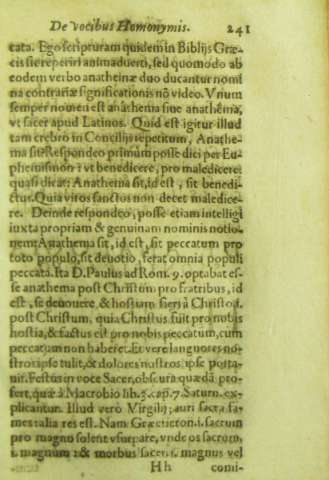 De vocibus Homonymis. 241
cata. Ego scripturam quidem in Biblijs Græ-
cis sic reperiri animaduerti, sed quomodo ab
eodem verbo anathema duo ducantur nomi
na contrariæ significationis nō video. Vnum
semper nomen est anathema siue anathêma,
vt sacer apud Latinos. Quid est igitur illud
tam crebrò in Concilijs repetitum, Anathe-
ma sit? Respondeo primùm posse dici per Eu-
phemismon i vt benedicere, pro maledicere:
quasi dicat: Anathema sit, id est, sit benedi-
ctus. Quia viros sanctos non decet maledice-
re. Deinde respondeo, posse etiam intelligi
iuxta propriam & genuinam nominis notio-
nem: Anathema sit, id est, sit peccatum pro
toto populo, sit deuotio, ferat omnia populi
peccata. Ita D. Paulus ad Rom. 9. optabat es-
se anathema post Christum pro fratribus, id
est, se deuouere, & hostiam fieri à Christo i.
post Christum, quia Christus fuit pro nobis
hostia, & factus est pro nobis peccatum, cum
peccatum non haberet. Et vere languores no-
stros ipse tulit, & dolores nostros ipse porta-
uit. Festus in voce Sacer, obscura quædā pro-
fert, quæ à Macrobio lib. 3. cap. 7. Saturn. ex-
plicantur. Illud verò Virgilij; auri sacra fa-
mes talia res est. Nam Græci ieron. i. sacrum
pro magno solent vsurpare, vnde os sacrum,
i. magnum: & morbus sacer. i. magnus vel
Hh comi-